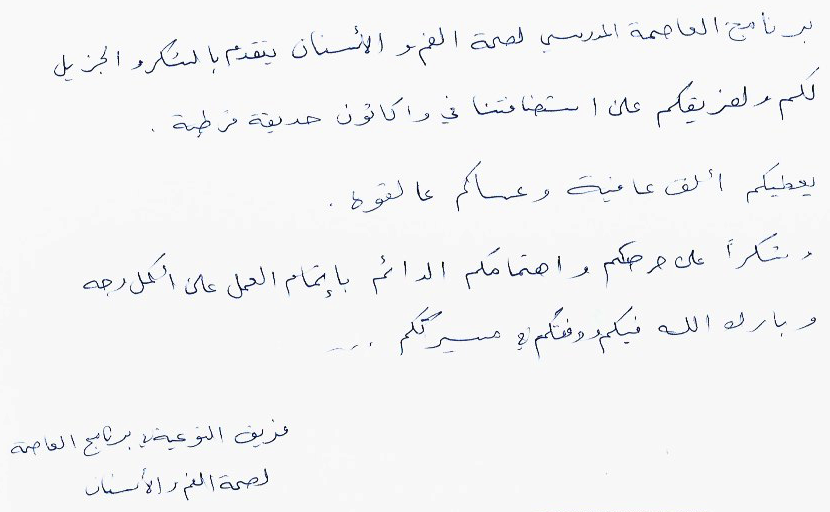 برنامج العاصمة المدرسي لصحة الفم و الأسنان يتقدم بالشكر و الجزيل
لكم و لفريقكم على استضافتنا في روضة كانون حديقة قرطبة .
يعطيكم ألف عافية و عساكم عالقوة .
و شكراً على حرصكم و اهتمامكم الدائم بإتمام العمل على أكمل وجه
و بارك الله فيكم ووفقكم في مسيرتكم ...
فريق التوعية في برنامج العاصمة
لصحة الفم و الأسنان